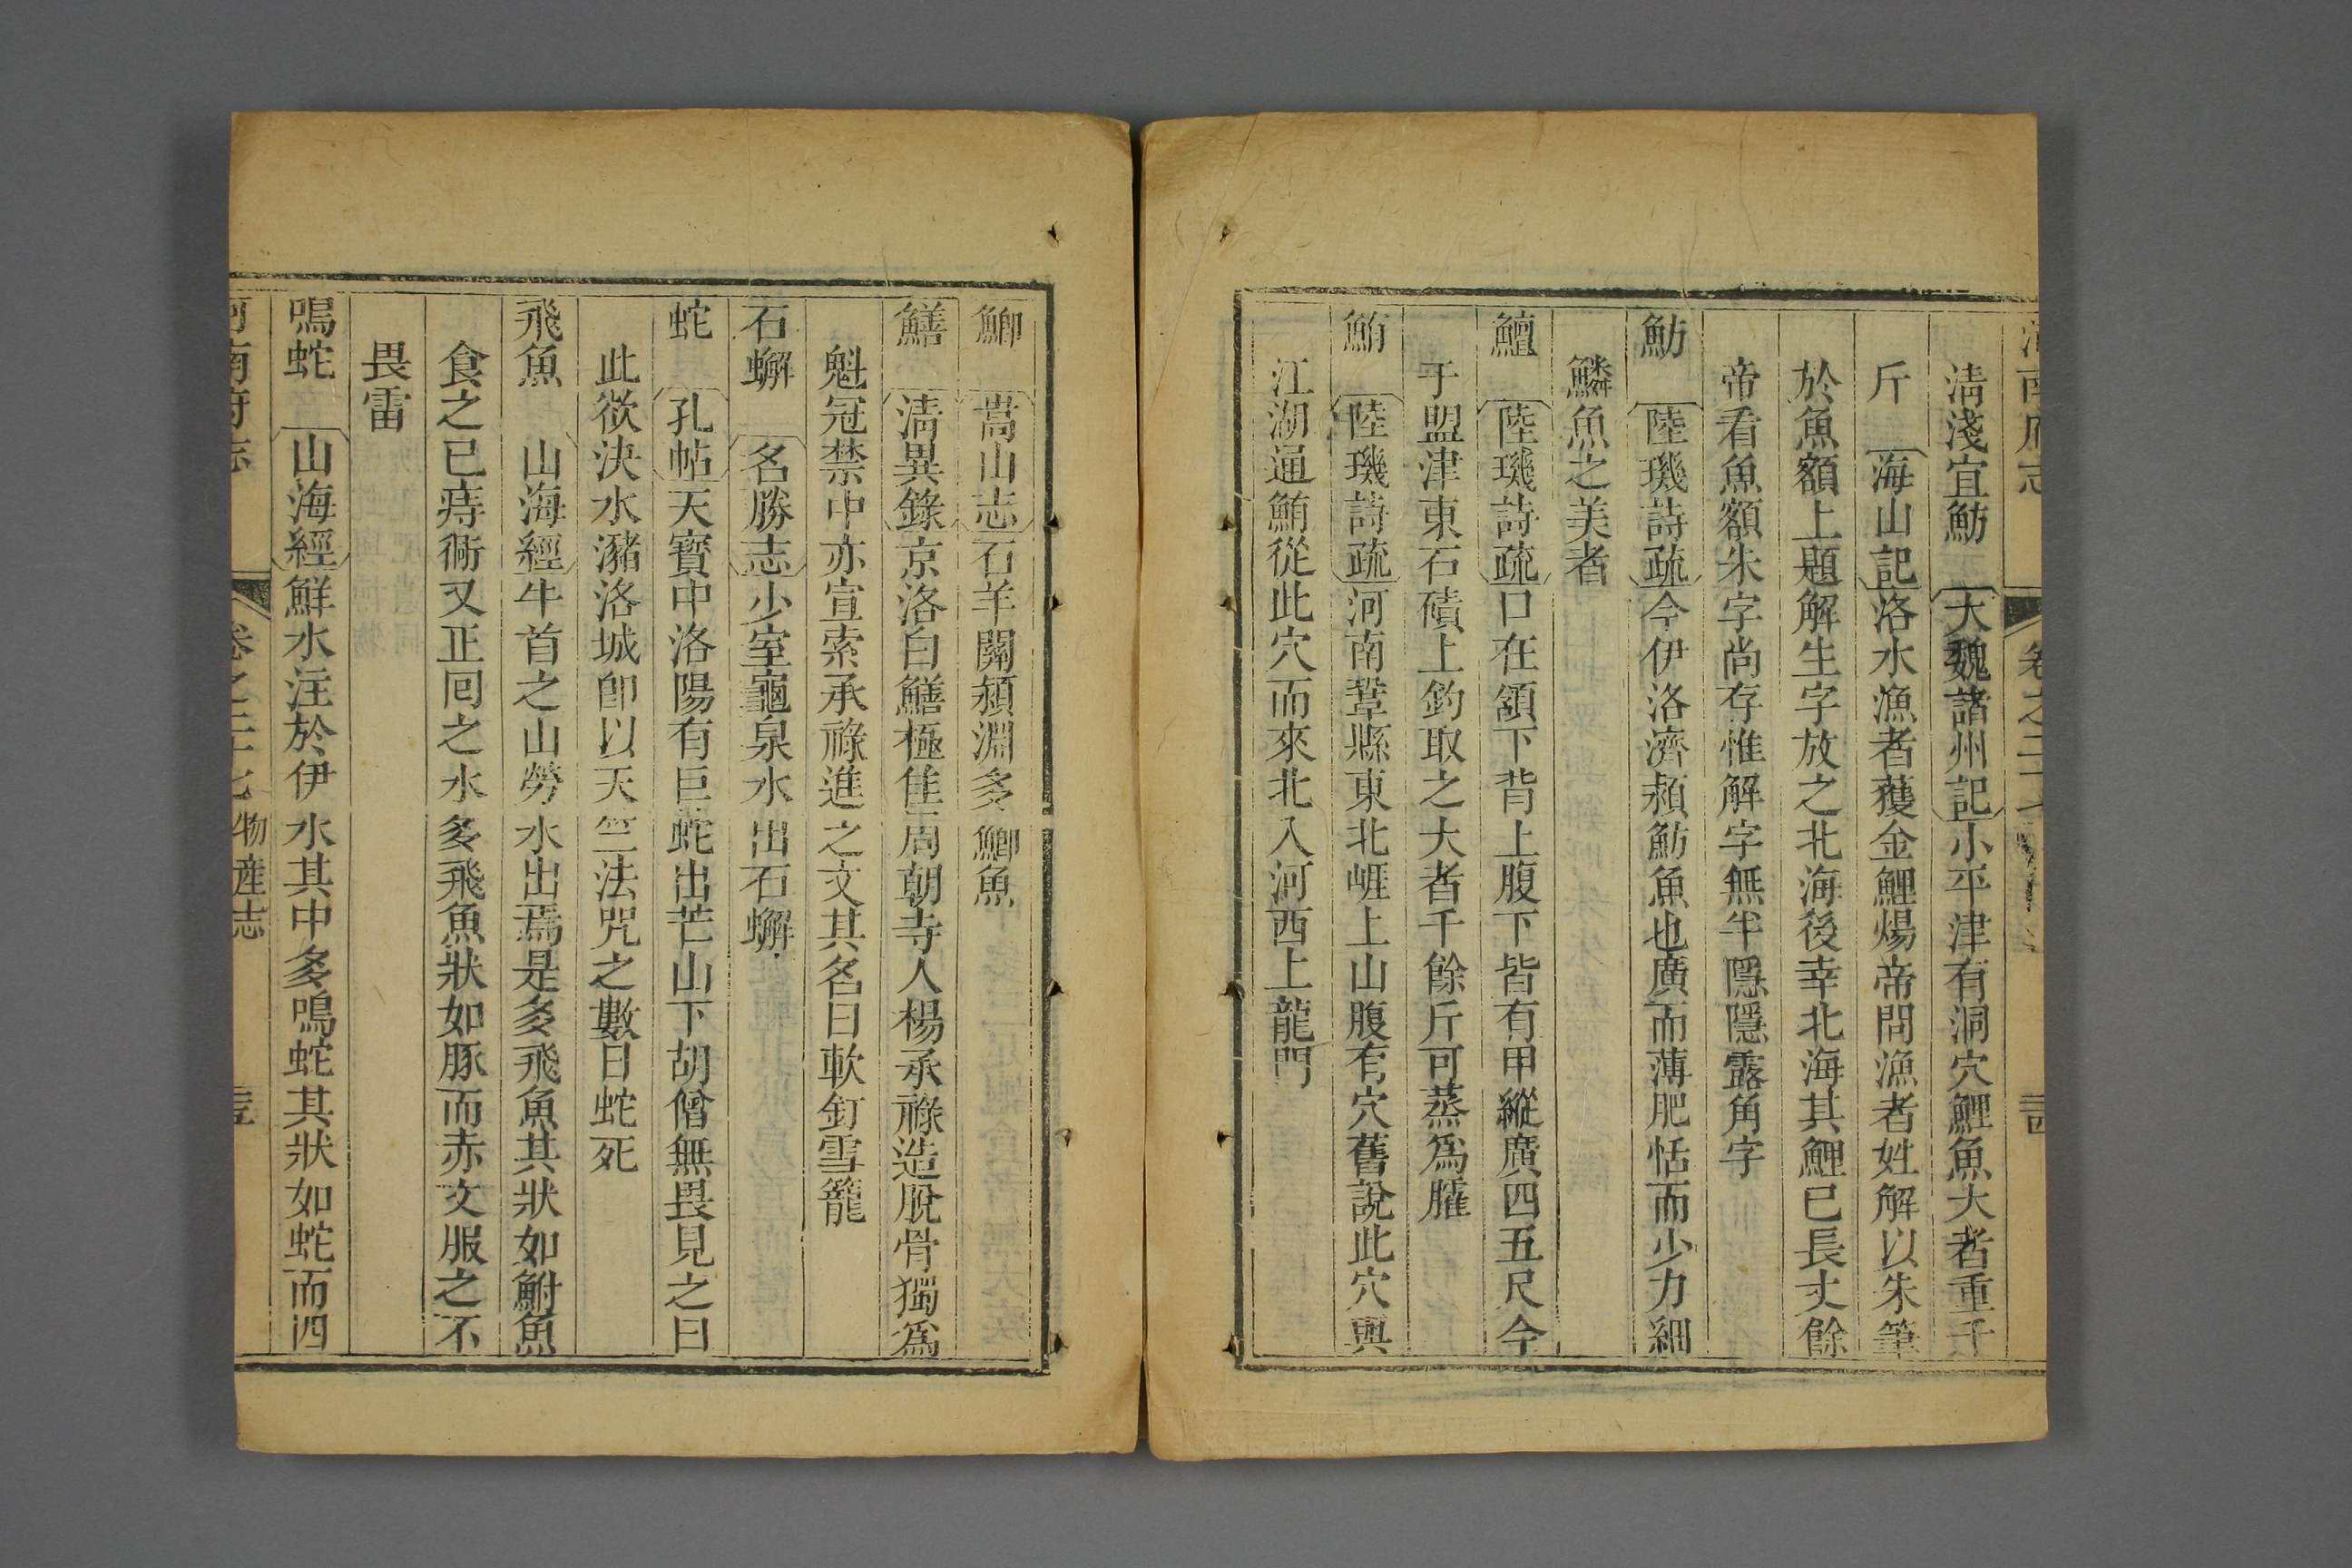 河南府志 卷之二十七
清淺宜魴 大魏諸州記小平津有洞穴鯉魚大者重千
斤 海山記洛水漁者獲金鯉煬帝問漁者姓解以朱筆
於魚額上題解生字放之北海後幸北海其鯉已長丈餘
帝看魚額朱字尚存惟解字無半隱隱露角字
魴 陸璣詩疏今伊洛濟潁魴魚也廣而薄肥恬而少力細
鱗魚之美者
鱣 陸璣詩疏口在頷下背上腹下皆有甲縱廣四五尺今
于盟津東石磧上釣取之大者千餘斤可蒸為臛
鮪 陸璣詩疏河南鞏縣東北崕上山腹有穴舊說此穴與
江湖通鮪從此穴而來北入河西上龍門
鯽 嵩山志石羊關潁淵多鯽魚
鱔 清異錄京洛白鱔極佳周朝寺人楊承祿造脫骨獨為
魁冠禁中亦宣索承祿進之文其名曰軟釘雪籠
石蠏 名勝志少室龜泉水出石蠏
蛇 孔帖天寶中洛陽有巨蛇出芒山下胡僧無畏見之曰
此欲決水瀦洛城卽以天竺法咒之數日蛇死
飛魚 山海經牛首之山勞水出焉是多飛魚其狀如鮒魚
食之已痔衕又正囘之水多飛魚狀如豚而赤文服之不
畏雷
鳴蛇 山海經鮮水注於伊水其中多鳴蛇其狀如蛇而四
河南府志 卷之二十七 物產志